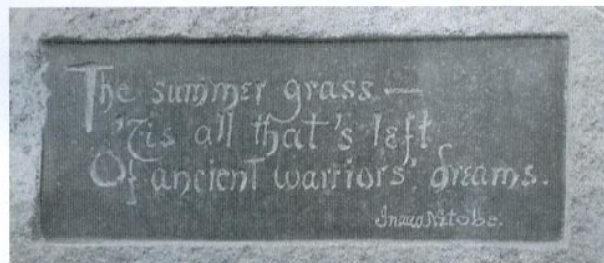 The summer grass —
'Tis all that's left
Of ancient warriors' dreams.
Inazo Nitobe.